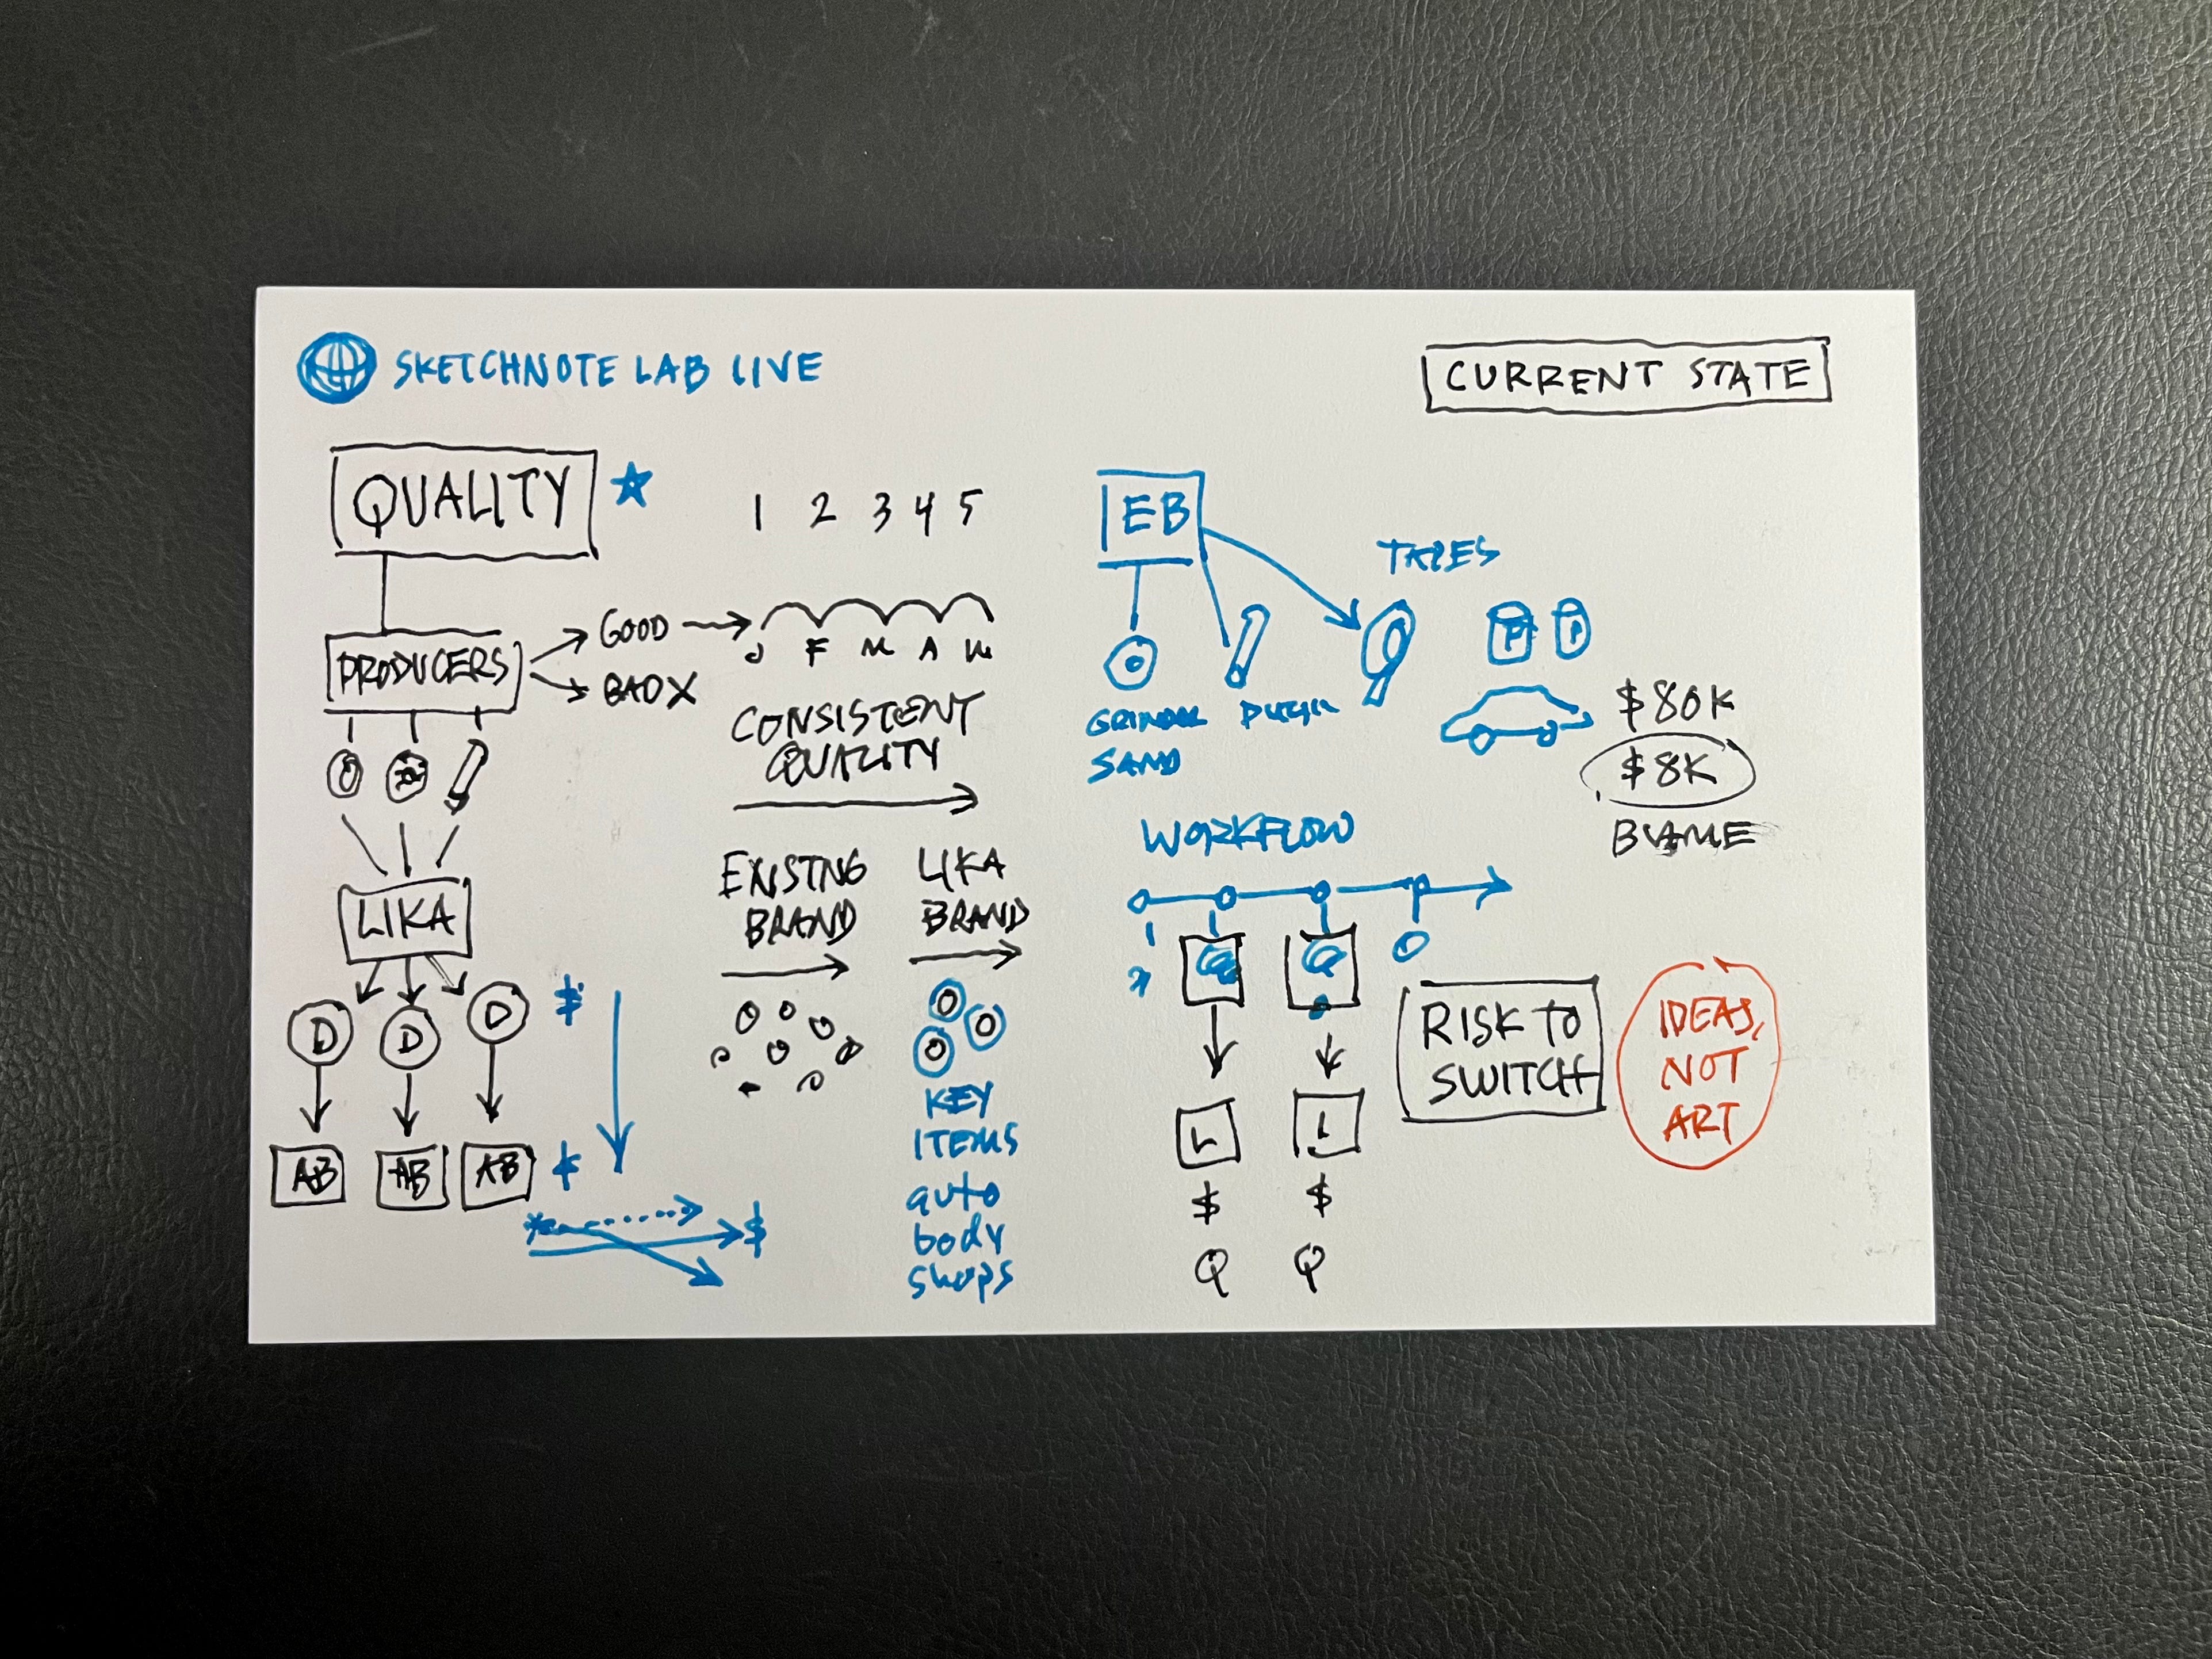 SKETCHNOTE LAB LIVE
CURRENT STATE
QUALITY
1 2 3 4 5
PRODUCERS
GOOD
BAD X
J F M A M
CONSISTENT
QUALITY
LIKA
D D D
$
AB AB AB
$
EXISTNG
BRAND
LIKA
BRAND
KEY
ITEMS
auto
body
shops
EB
TAPES
SAND
P
$80K
$8K
BLAME
WORKFLOW
L L
$ $
Q Q
RISK TO
SWITCH
IDEAS,
NOT
ART